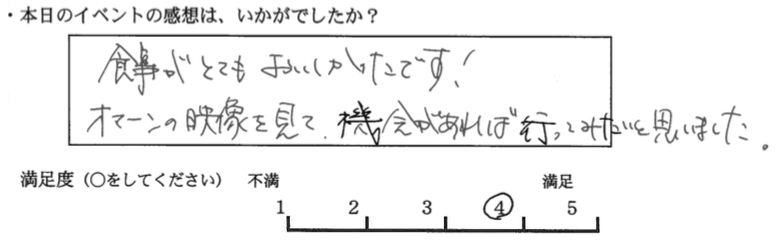 ・本日のイベントの感想は、いかがでしたか？
食事がとてもおいしかったです！
オマーンの映像を見て、機会があれば行ってみたいと思いました。
満足度（○をしてください） 不満 満足
1 2 3 4 5